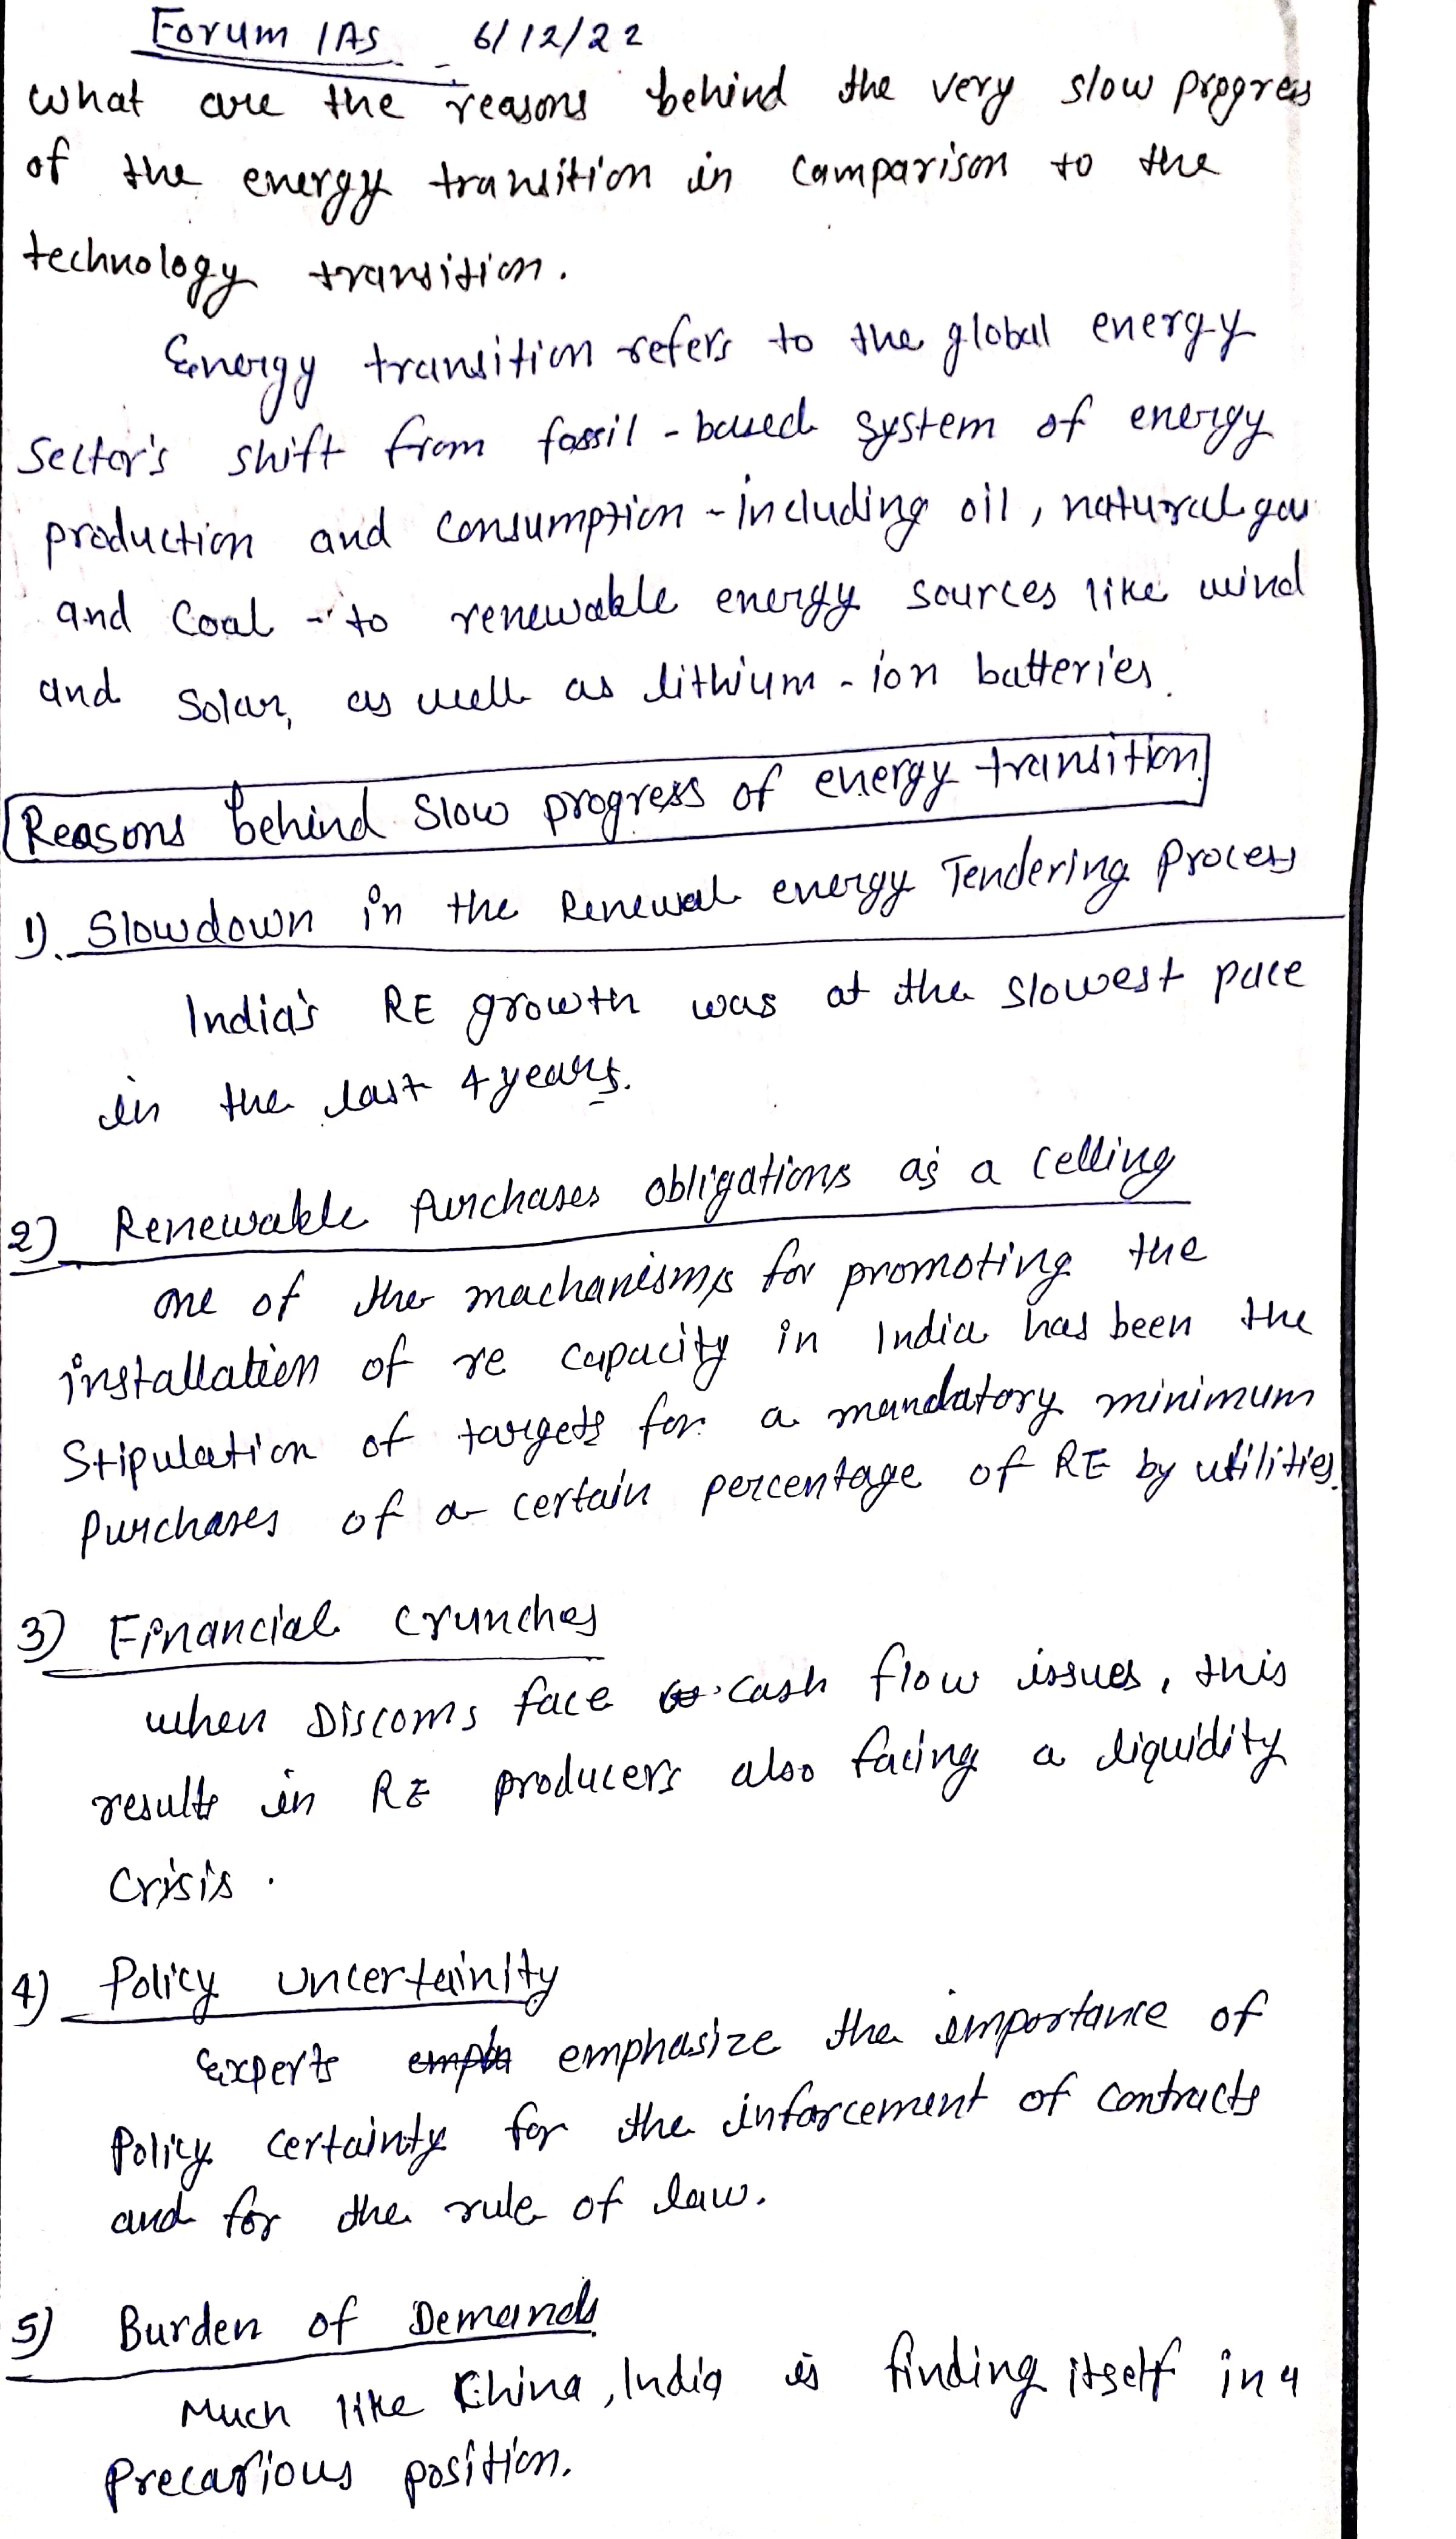 Forum IAS - 6/12/22
What are the reasons behind the very slow progress
of the energy transition in comparison to the
technology transition.
Energy transition refers to the global energy
Sector's shift from fossil-based system of energy
production and consumption - including oil, natural gas
and Coal - to renewable energy sources like wind
and Solar, as well as lithium-ion batteries.
Reasons behind Slow progress of energy transition
1). Slowdown in the Renewal energy Tendering Process
India's RE growth was at the slowest pace
in the last 4 years.
2) Renewable Purchases obligations as a celling
one of the machanisms for promoting the
installation of re capacity in India has been the
Stipulation of targets for a mandatory minimum
Purchases of a certain percentage of RE by utilities.
3) Financial crunches
when Discoms face cash flow issues, this
results in RE producers also facing a liquidity
Crisis.
4) Policy uncertainity
Experts emphasize the importance of
Policy certainty for the inforcement of contracts
and for the rule of law.
5) Burden of Demands
Much like China, India is finding itself in a
Precarious position.